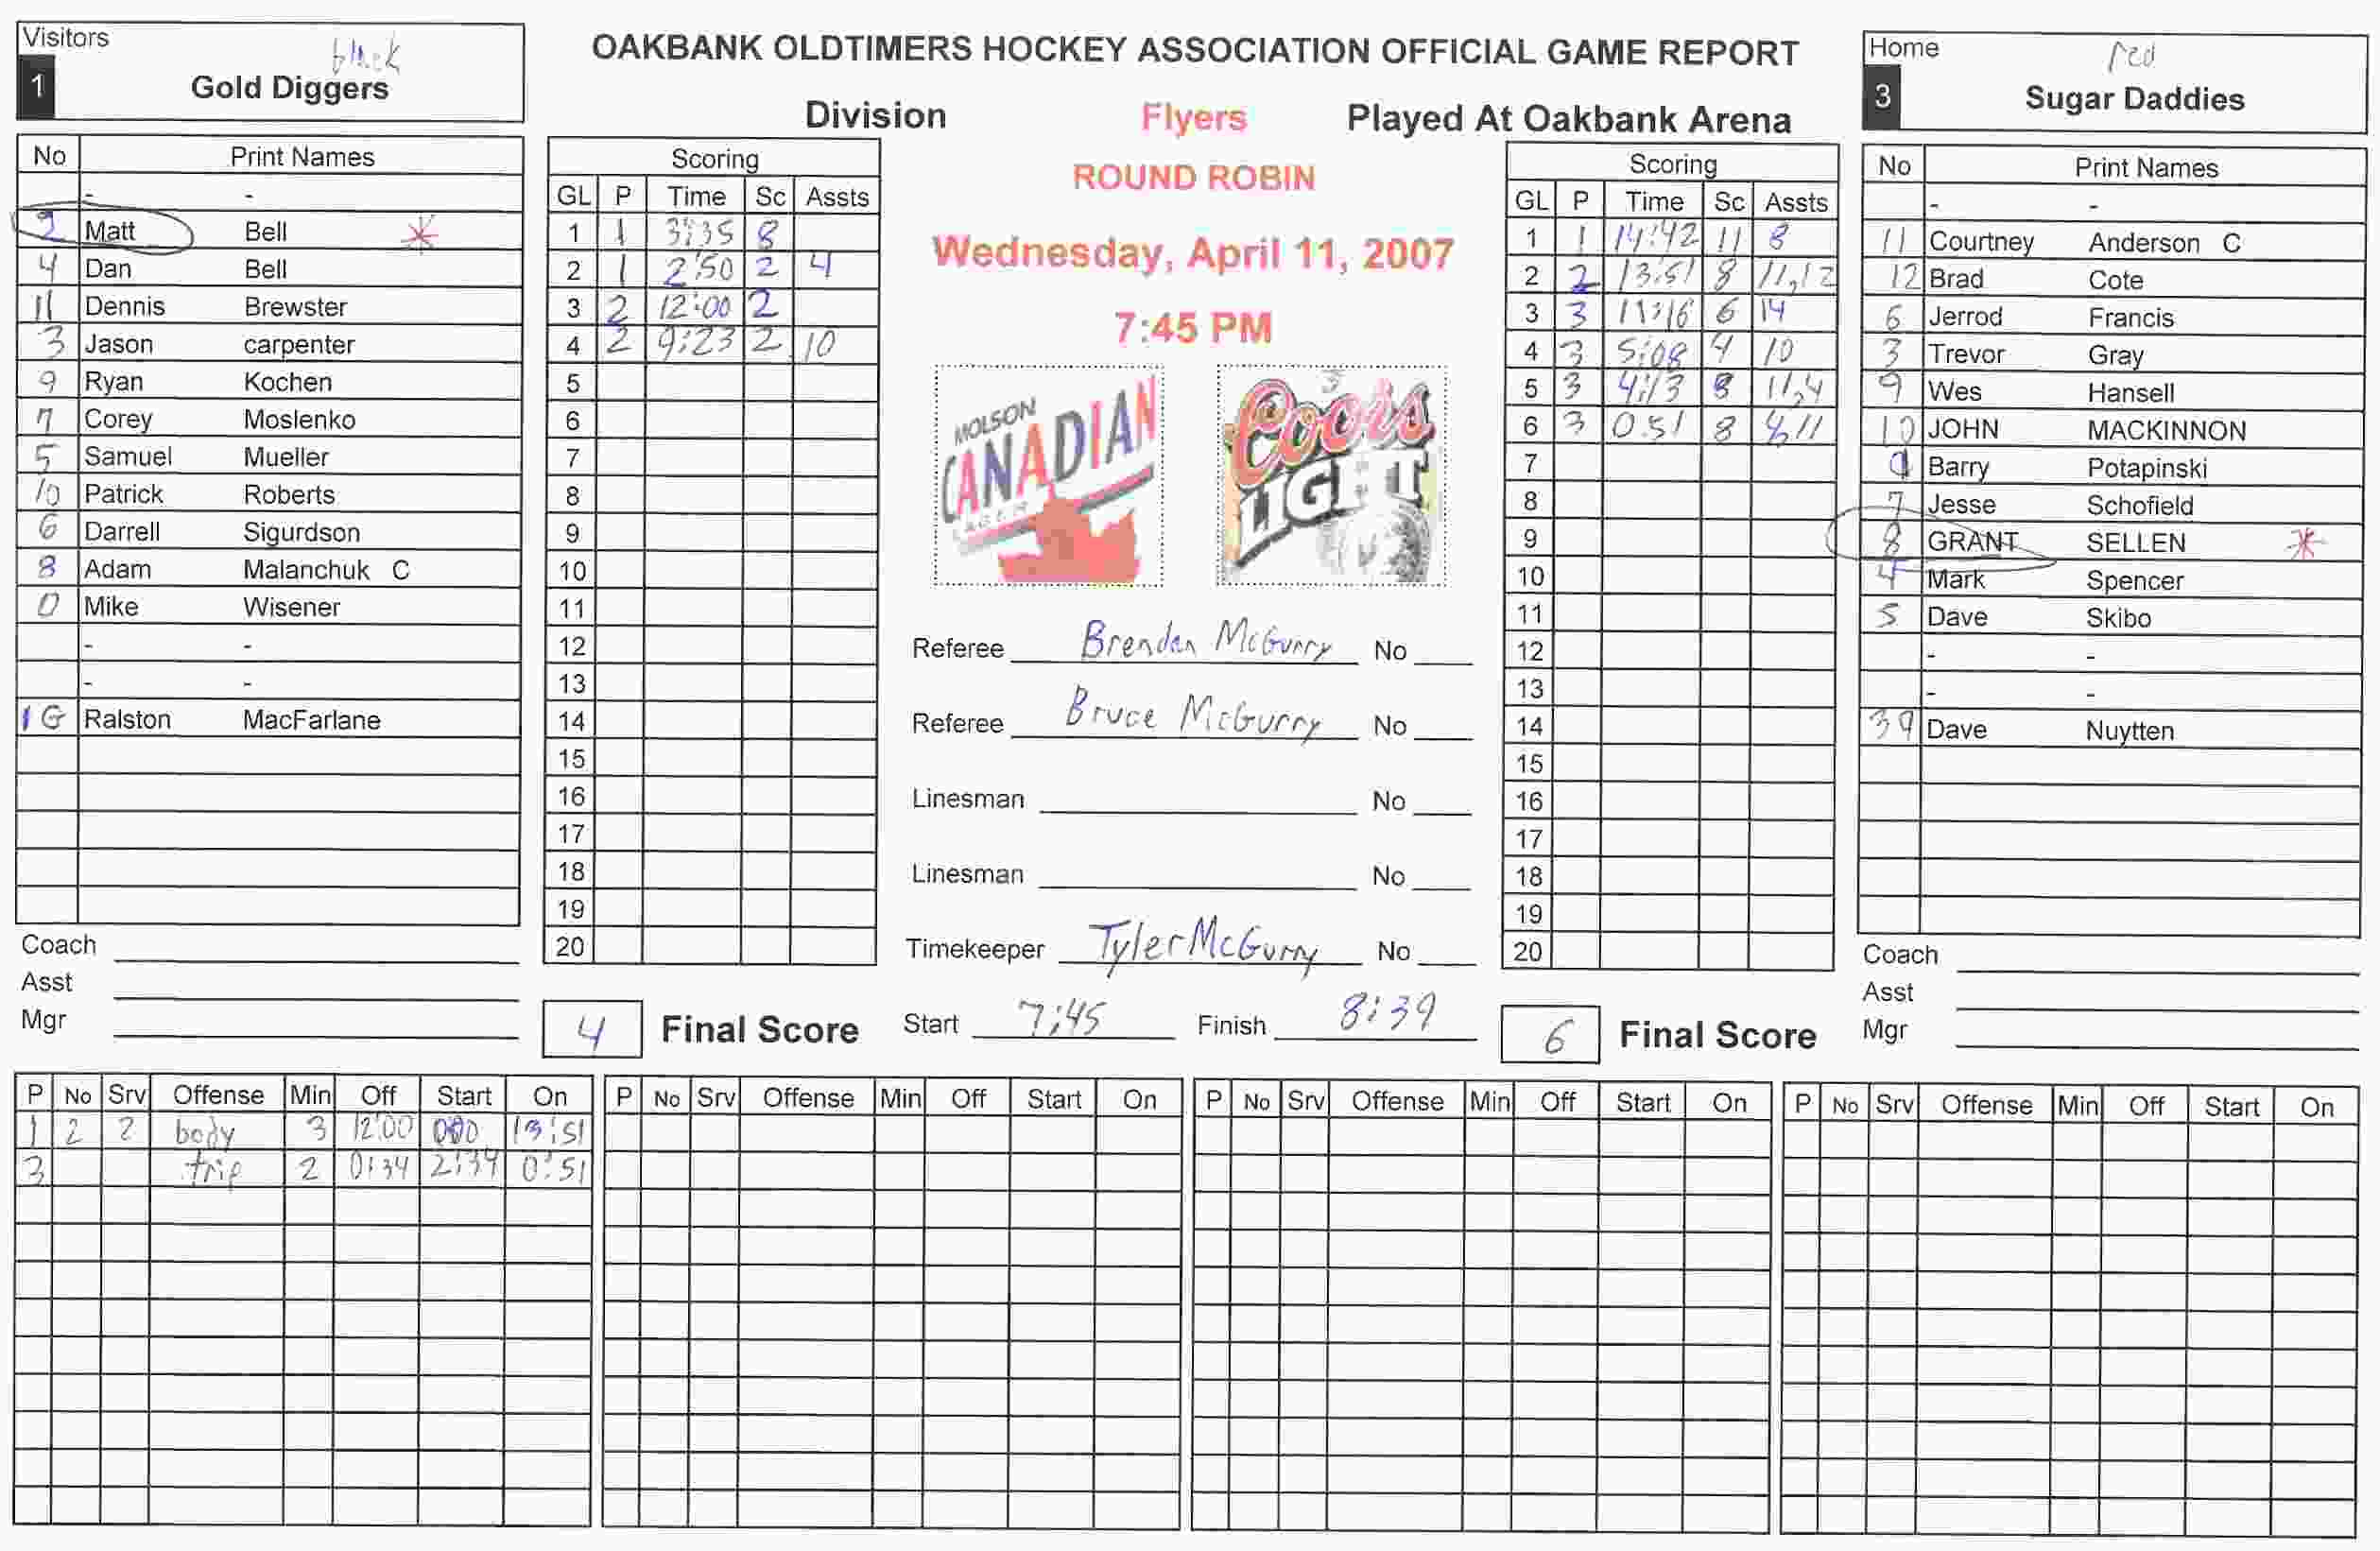 Visitors
black
1 Gold Diggers
OAKBANK OLDTIMERS HOCKEY ASSOCIATION OFFICIAL GAME REPORT
Division Flyers Played At Oakbank Arena
ROUND ROBIN
Wednesday, April 11, 2007
7:45 PM
Home
red
3 Sugar Daddies
No Print Names
- -
2 Matt Bell *
4 Dan Bell
11 Dennis Brewster
3 Jason carpenter
9 Ryan Kochen
7 Corey Moslenko
5 Samuel Mueller
10 Patrick Roberts
6 Darrell Sigurdson
8 Adam Malanchuk C
0 Mike Wisener
- -
- -
1 G Ralston MacFarlane
Coach
Asst
Mgr
Scoring
GL P Time Sc Assts
1 1 3:35 8
2 1 2:50 2 4
3 2 12:00 2
4 2 9:23 2 10
5
6
7
8
9
10
11
12
13
14
15
16
17
18
19
20
4 Final Score
MOLSON
CANADIAN
LAGER
Coors
LIGHT
Referee Brendan McGurry No
Referee Bruce McGurry No
Linesman No
Linesman No
Timekeeper Tyler McGurry No
Start 7:45 Finish 8:39
Scoring
GL P Time Sc Assts
1 1 14:42 11 8
2 2 13:51 8 11,12
3 3 11:16 6 14
4 3 5:08 4 10
5 3 4:13 8 11,4
6 3 0:51 8 11
7
8
9
10
11
12
13
14
15
16
17
18
19
20
6 Final Score
No Print Names
- -
11 Courtney Anderson C
12 Brad Cote
6 Jerrod Francis
3 Trevor Gray
9 Wes Hansell
10 JOHN MACKINNON
Barry Potapinski
7 Jesse Schofield
8 GRANT SELLEN *
4 Mark Spencer
5 Dave Skibo
- -
- -
39 Dave Nuytten
Coach
Asst
Mgr
P No Srv Offense Min Off Start On
1 2 2 body 3 12:00 000 13:51
3 trip 2 0:34 2:34 0:51
P No Srv Offense Min Off Start On
P No Srv Offense Min Off Start On
P No Srv Offense Min Off Start On